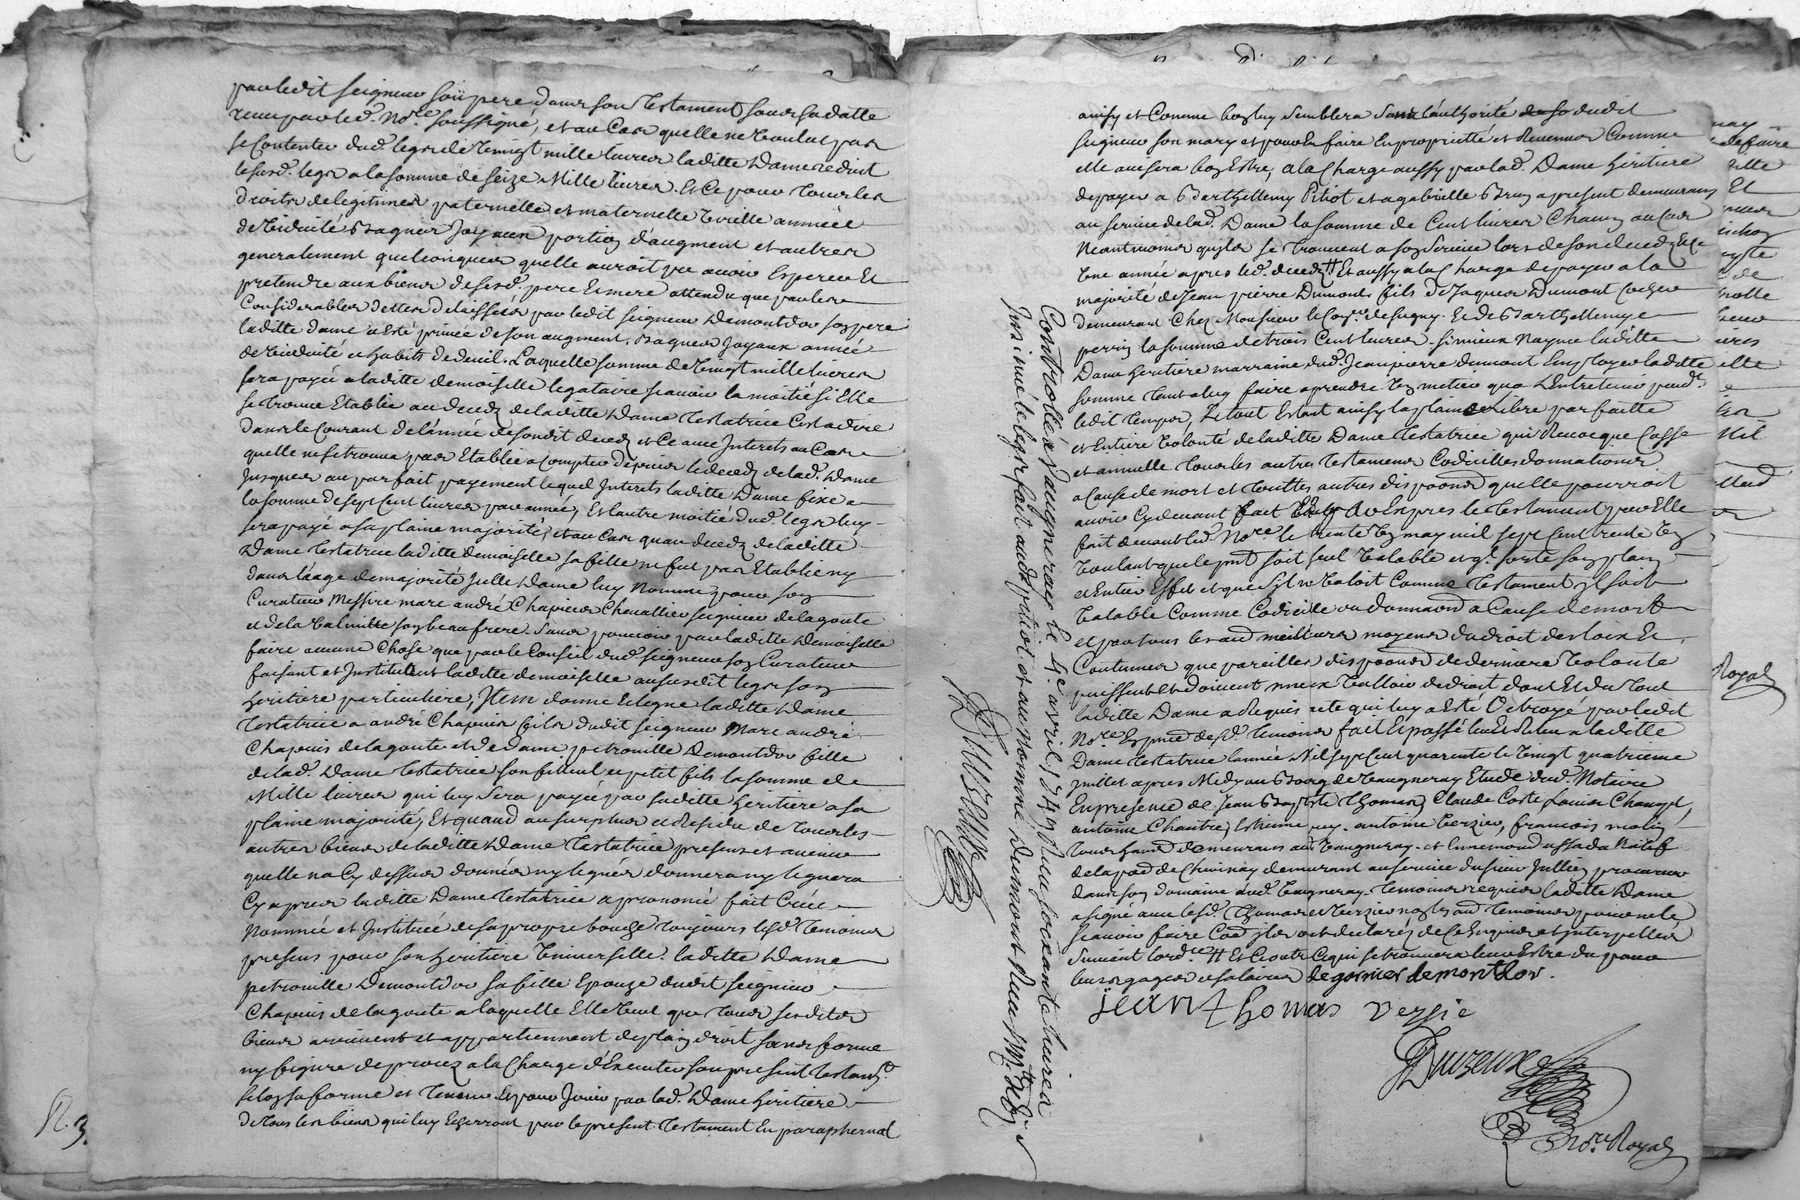 par ledit seigneur son pere dans son testament sous sa datte
receu par led. No.re soussigné, et au cas quelle ne voulut pas
se contenter dud. legs de vingt mille livres laditte Dame reduit
lesusd. legs a la somme de seize Mille livres. Et ce pour tous les
droits de legitimes paternelle et maternelle vielle année
de viduité Bagues Joyaux portion d'augment et autres
generalement quelconques quelle auroit pu avoir Esperer Et
pretendre aux biens de sesd. pere Et mere attendu que par les
Considerables dettes delaissées par ledit seigneur Demontdor son pere
laditte dame a esté privée de son augment, Bagues Joyaux année
de viduité et habits de deuil. Laquelle somme de vingt mille livres
sera payée a laditte demoiselle legataire scavoir la moitié si Elle
se trouve Etablie au deced de laditte Dame Testatrice Cest a dire
dans le Courant de l'année de sondit deced et ce avec Interets au Cas
quelle ne se trouva pas Etablie a compter dépuis le deced de lad. Dame
Jusques au parfait payement lequel Interets laditte Dame fixe a
la somme de sept Cent livres par année, Et lautre moitié dud. legs luy
sera payé a sa plaine majorité, et au cas quau deced de laditte
Dame Testatrice laditte demoiselle sa fille ne fut pas Etablie ny
dans l'aage de majorité Jcelle Dame luy Nomme pour son
Curateur Messire marc andré Chapuis Chevallier seigneur de lagoute
et de la valmitte son beaufrere. Sans pouvoir par laditte Demoiselle
faire aucune Chose que par le Conseil dud. seigneur son Curateur
faisant et Instituant laditte demoiselle au susdit legs son
heritiere particuliere, Jtem donne Et legue laditte Dame
Testatrice a andré Chapuis fils dudit seigneur Marc andré
Chapuis delagoute et de Dame petronille Demontdor fille
de lad. Dame Testatrice son filleul et petit fils la somme de
Mille livres qui luy sera payée par saditte heritiere a sa
plaine majorité, Et quand au surplus et Residu de tous les
autres biens de laditte Dame Testatrice presens et avenir
quelle na Cy dessus donnés ny legués donnera ny leguera
Cy apres laditte Dame Testatrice a prononcé fait Créé
Nommée et Justituée de sa propre bouche toujours lesd. Temoins
presens pour son heritiere Universelle. laditte Dame
petronille Demontdor sa fille Epouze dudit seigneur
Chapuis de lagoute a laquelle Elle veut que tous sesdits
biens arrivent et appartiennent deplain droit sans forme
ny figure de procez a la Charge d'Executer son present testam.t
selon sa forme et teneur. Et pour Jouir par lad. Dame heritiere
de tous les biens qui luy Echerront par le present Testament En paraphernal
R. 3.
ainsy et Comme bon luy semblera sans l'authorité dudit
seigneur son mary et pouvoir faire En proprieté et Revenus Comme
elle avisera bon Estre, a la Charge aussy par lad. Dame heritiere
de payer a Barthellemy Pitiot et a gabrielle Brun a present demeurans
au service de lad. Dame la somme de Cent livres Chacun au Cas
Neantmoins quils se trouvent a son service lors de son deced Et ce
Une année apres led. deced Et aussy a la Charge de payer a la
majorité de Jean pierre Dumont fils de Jaques Dumont Cocher
demeurant Chez Monsieur le de sugny. Et de Barthellemye
perrin la somme de trois Cent livres. si mieux Nayme laditte
Dame heritiere marraine dud. Jean pierre dumont Employer laditte
somme tant a luy faire aprendre Un metier qua L'Entretenir pend.t
ledit tempts, Le tout Estant ainsy la plaine Libre parfaitte
et Entiere Volonté de laditte Dame testatrice qui Revocque Casse
et annulle tous les autres testamens Codicilles donnations
a Cause de mort et touttes autres dispoons quelle pourroit
avoir Cy devant fait Et par Expres le testament par Elle
fait devant led. No.re le trente Un may mil sept Cent trente Un
voulant que le pnt soit seul valable et q.l sorte son plain
et Entier Effet et que sil ne valoit Comme testament il soit
valable Comme Codicille ou donnaon a Cause de mort
et par tous les meilleurs moyens du droit des loix Et
Coutumes que pareilles dispoons de derniere volonté
puissent et doivent mieux valloir de droit dont Et du tout
laditte Dame a Requis acte qui luy a Esté Octroyé par ledit
No.re En pnce desd. Temoins fait Et passé leu Et Releu a laditte
Dame testatrice l'année Mil sept Cent quarente le vingt quatrieme
juillet apres Midy au Bourg de Vaugneray Etude dud. Notaire
En presence de Jean Baptiste thomas, Claude Coste Louis Chanuel,
antoine Chantre, Estienne antoine Verzier, francois
tous demeurans aud. Vaugneray. et natif
de la pad de Chevinay demeurant au service du sieur Jullien procureur
dans son domaine dud. Vaugneray. temoins requis laditte Dame
a signé avec lesd. thomas et Verzier non les aud temoins pour ne le
scavoir faire ainsy quils ont declarez de ce Enquis et Interpellés
suivant lordce Et
leurs gages et salaires degarnier demontdor.
jean thomas verzie
Duvzeux
No.re Royal
Controllé a vaugneray le 4e avril 1741 Receu soixante livres
Jnsinué le legs fait aud. pitiot et au nommé Dumont Receu
Duvzeux